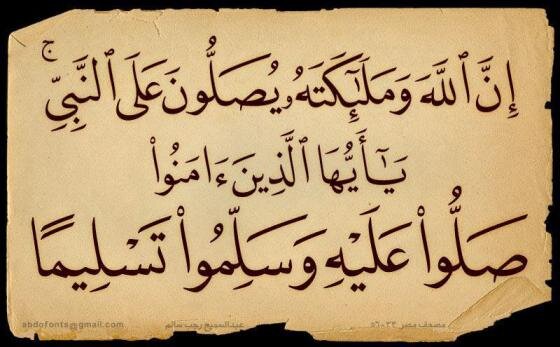 إِنَّ ٱللَّهَ وَمَلَٰٓئِكَتَهُۥ يُصَلُّونَ عَلَى ٱلنَّبِيِّۚ
يَٰٓأَيُّهَا ٱلَّذِينَ ءَامَنُوا۟
صَلُّوا۟ عَلَيْهِ وَسَلِّمُوا۟ تَسْلِيمًا
مصحف مصر عبدالسميع رجب سالم abdofonts@gmail.com